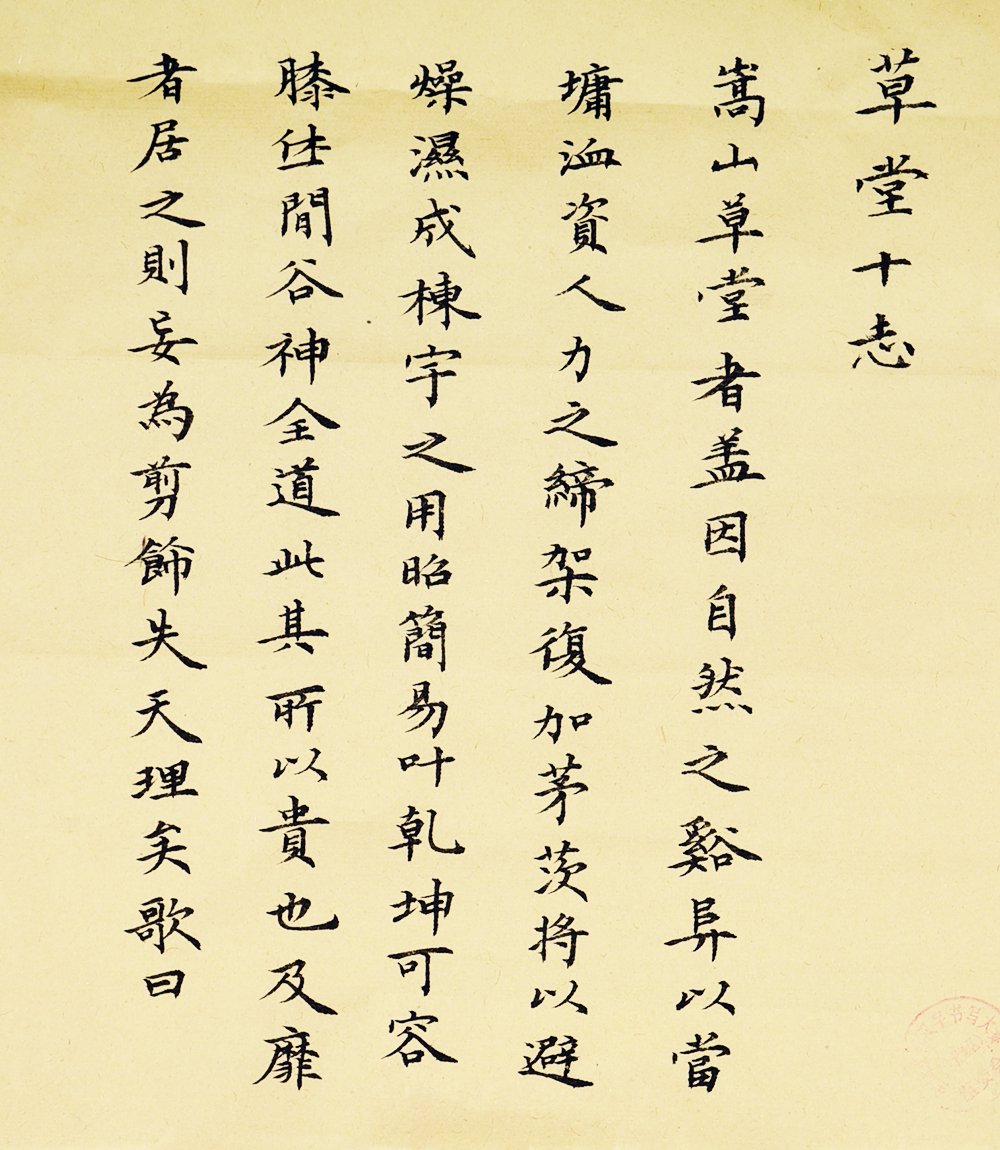 草堂十志
嵩山草堂者盖因自然之谿阜以當
墉洫資人力之締架復加茅茨將以避
燥濕成棟宇之用昭簡易叶乾坤可容
膝休閒谷神全道此其所以貴也及靡
者居之則妄為剪飾失天理矣歌曰